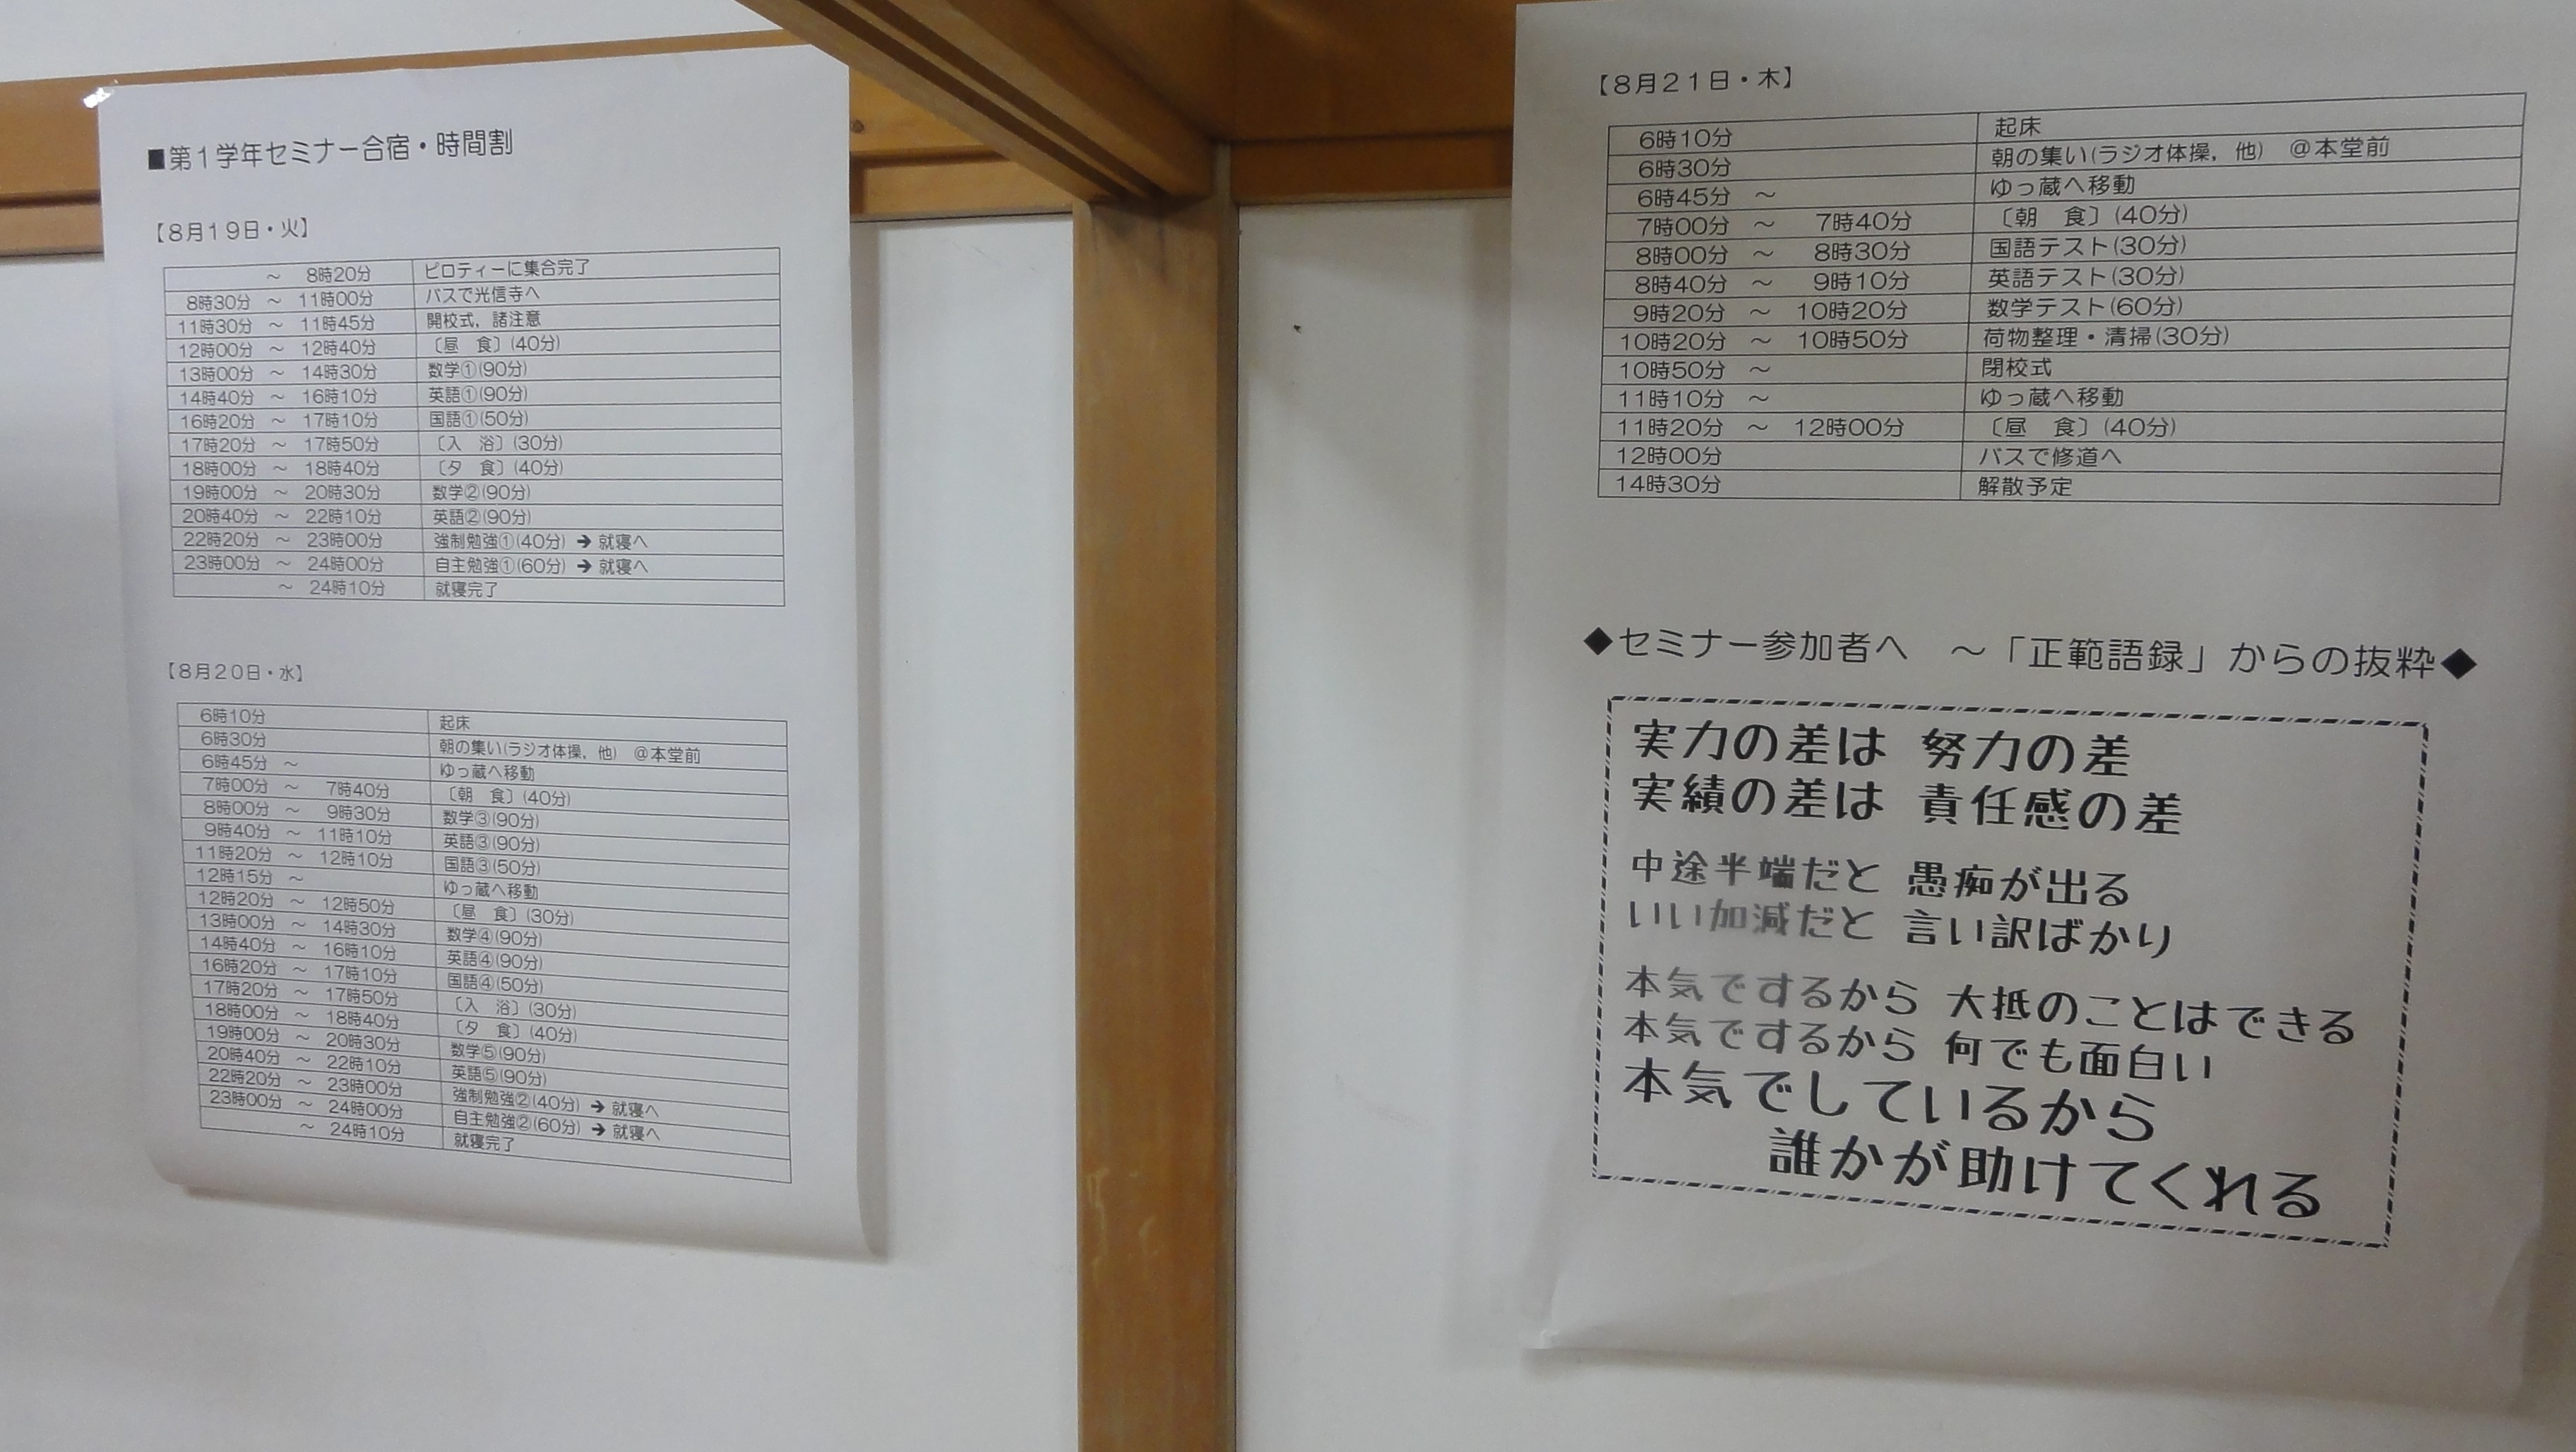 ■第1学年セミナー合宿・時間割
【8月19日・火】
～ 8時20分 ピロティーに集合完了
8時30分 ～ 11時00分 バスで光信寺へ
11時30分 ～ 11時45分 開校式，諸注意
12時00分 ～ 12時40分 〔昼　食〕(40分)
13時00分 ～ 14時30分 数学①(90分)
14時40分 ～ 16時10分 英語①(90分)
16時20分 ～ 17時10分 国語①(50分)
17時20分 ～ 17時50分 〔入　浴〕(30分)
18時00分 ～ 18時40分 〔夕　食〕(40分)
19時00分 ～ 20時30分 数学②(90分)
20時40分 ～ 22時10分 英語②(90分)
22時20分 ～ 23時00分 強制勉強①(40分) ➔ 就寝へ
23時00分 ～ 24時00分 自主勉強①(60分) ➔ 就寝へ
～ 24時10分 就寝完了
【8月20日・水】
6時10分 起床
6時30分 朝の集い(ラジオ体操，他)　＠本堂前
6時45分 ～ ゆっ蔵へ移動
7時00分 ～ 7時40分 〔朝　食〕(40分)
8時00分 ～ 9時30分 数学③(90分)
9時40分 ～ 11時10分 英語③(90分)
11時20分 ～ 12時10分 国語③(50分)
12時15分 ～ ゆっ蔵へ移動
12時20分 ～ 12時50分 〔昼　食〕(30分)
13時00分 ～ 14時30分 数学④(90分)
14時40分 ～ 16時10分 英語④(90分)
16時20分 ～ 17時10分 国語④(50分)
17時20分 ～ 17時50分 〔入　浴〕(30分)
18時00分 ～ 18時40分 〔夕　食〕(40分)
19時00分 ～ 20時30分 数学⑤(90分)
20時40分 ～ 22時10分 英語⑤(90分)
22時20分 ～ 23時00分 強制勉強②(40分) ➔ 就寝へ
23時00分 ～ 24時00分 自主勉強②(60分) ➔ 就寝へ
～ 24時10分 就寝完了
【8月21日・木】
6時10分 起床
6時30分 朝の集い(ラジオ体操，他)　＠本堂前
6時45分 ～ ゆっ蔵へ移動
7時00分 ～ 7時40分 〔朝　食〕(40分)
8時00分 ～ 8時30分 国語テスト(30分)
8時40分 ～ 9時10分 英語テスト(30分)
9時20分 ～ 10時20分 数学テスト(60分)
10時20分 ～ 10時50分 荷物整理・清掃(30分)
10時50分 ～ 閉校式
11時10分 ～ ゆっ蔵へ移動
11時20分 ～ 12時00分 〔昼　食〕(40分)
12時00分 バスで修道へ
14時30分 解散予定
◆セミナー参加者へ　～「正範語録」からの抜粋◆
実力の差は 努力の差
実績の差は 責任感の差
中途半端だと 愚痴が出る
いい加減だと 言い訳ばかり
本気でするから 大抵のことはできる
本気でするから 何でも面白い
本気でしているから
誰かが助けてくれる